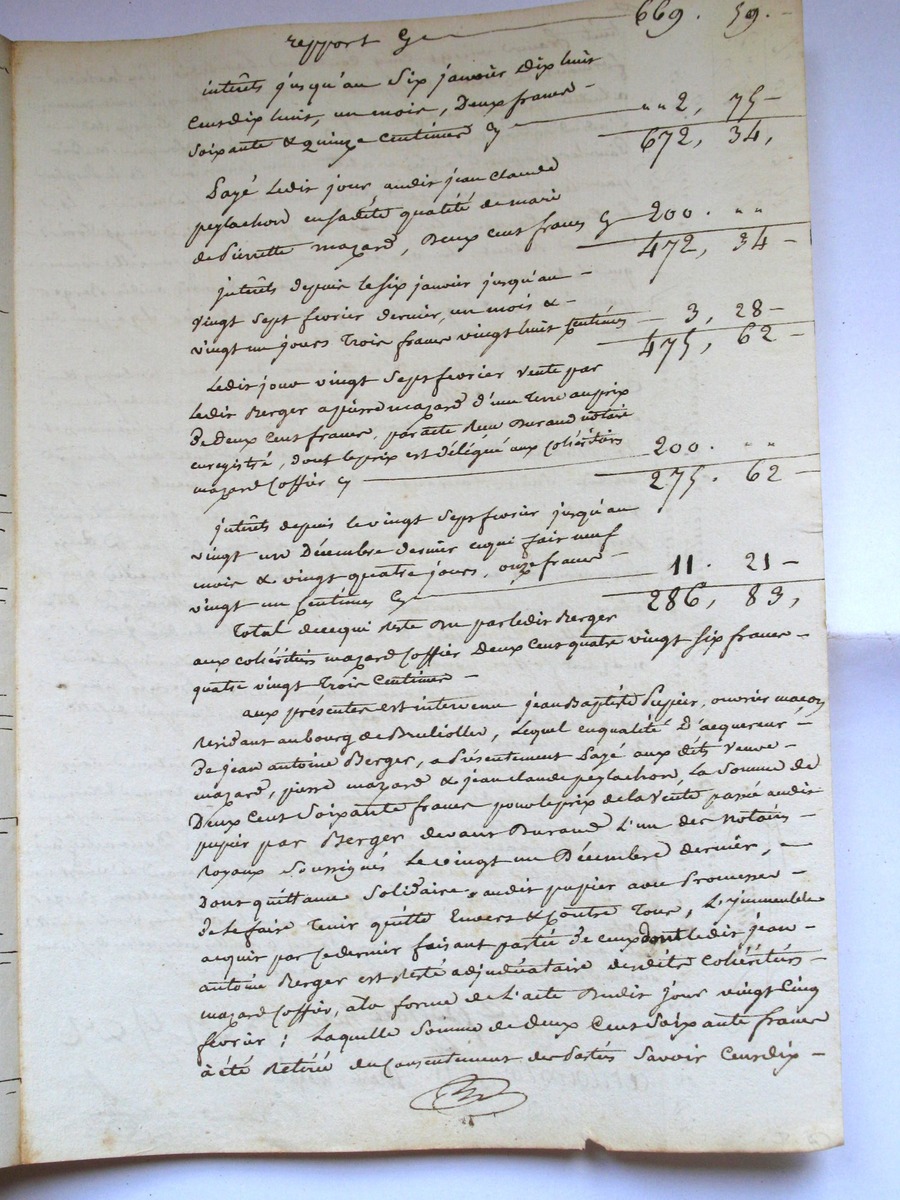 report Cy 669. 59.-
intérêts jusqu'au Six janvier Dix huit
Cent dix huit, un mois, Deux francs -
Soixante & Quinze Centimes Cy "" 2, 75-
672, 34,
Payé Ledit jour audit jean Claude
peylachon en sadite qualité de mari
de Pierrette mazard, Deux Cent francs Cy 200. ""
472, 34-
intérêts depuis le six janvier jusqu'au -
vingt Sept fevrier dernier, un mois & -
vingt un jours Trois francs vingt huit Centimes 3, 28-
475, 62-
Ledit jour vingt Sept fevrier vente par
ledit Berger a pierre mazard d'une Terre au prix
de Deux Cent francs, par acte Reçu Durand notaire
enregistré, dont le prix est délégué aux Cohéritiers
mazard Coffier Cy 200. ""
275. 62-
intérêts depuis le vingt Sept fevrier jusqu'au
vingt un Décembre dernier ce qui fait neuf
mois & vingt quatre jours, onze francs -
vingt un Centimes Cy 11. 21-
286, 83,
Total de ce qui reste Du par ledit Berger
aux cohéritiers mazard Coffier Deux Cent quatre vingt Six francs -
quatre vingt Trois Centimes -
aux présentes est intervenu jean Baptiste Pupier, ouvrier maçon
Résidant au bourg de Brulliolles, Lequel en qualité D'acquereur -
De jean antoine Berger, a Présentement Payé aux dits veuve -
mazard, pierre mazard & jean Claude peylachon, La Somme de
Deux Cent Soixante francs pour le prix de la vente passée audit
pupier par Berger devant Durand L'un des Notaires -
Royaux Soussignés Le vingt un Décembre dernier, -
Dont quittance Solidaire audit pupier avec Promesse -
De le faire Tenir quitte Envers & Contre Tous, L'immeuble
acquis par ce dernier faisant partie De ceux dont ledit jean -
antoine Berger est Resté adjudicataire desdits Cohéritiers -
mazard Coffier, a la forme de L'acte Dudit jour vingt Cinq
fevrier; Laquelle Somme de deux Cent Soixante francs
à été Retirée du Consentement des Parties Savoir Cent dix -